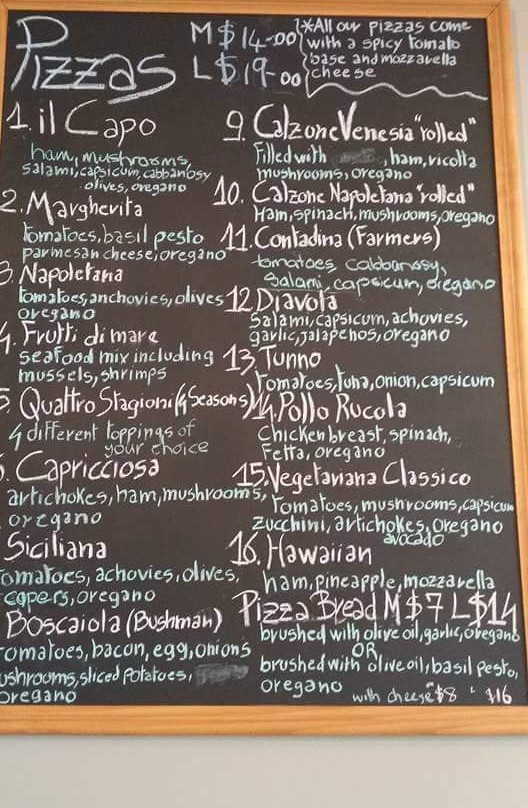 Pizzas
M $14-00
L $19-00
*All our pizzas come
with a spicy tomato
base and mozzarella
cheese
1. il Capo
ham, mushrooms,
salami, capsicum, cabbanosy
olives, oregano
2. Margherita
tomatoes, basil pesto
parmesan cheese, oregano
3. Napoletana
tomatoes, anchovies, olives
oregano
4. Frutti di mare
seafood mix including
mussels, shrimps
5. Quattro Stagioni (4 Seasons)
4 different toppings of
your choice
6. Capricciosa
artichokes, ham, mushrooms,
oregano
Siciliana
tomatoes, achovies, olives,
capers, oregano
Boscaiola (Bushman)
tomatoes, bacon, egg, onions
mushrooms, sliced potatoes,
oregano
9. Calzone Venesia "rolled"
Filled with ham, ricotta
mushrooms, oregano
10. Calzone Napoletana "rolled"
Ham, spinach, mushrooms, oregano
11. Contadina (Farmers)
tomatoes, cabbanosy,
Salami, capsicum, oregano
12. Diavola
Salami, capsicum, achovies,
garlic, jalapenos, oregano
13. Tunno
Tomatoes, tuna, onion, capsicum
14. Pollo Rucola
Chicken breast, spinach,
Fetta, oregano
15. Vegetariana Classico
Tomatoes, mushrooms, capsicum
zucchini, artichokes, oregano
avocado
16. Hawaiian
ham, pineapple, mozzarella
Pizza Bread M $7 L $14
brushed with olive oil, garlic, oregano
OR
brushed with olive oil, basil pesto,
oregano
with cheese $8 $16